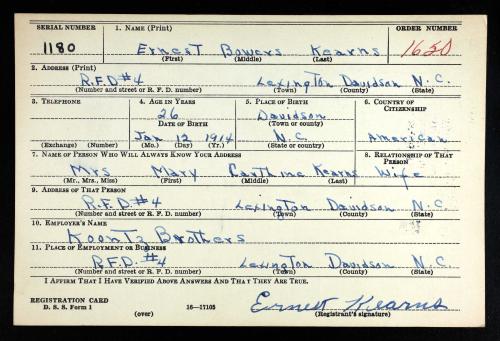 SERIAL NUMBER 1. NAME (Print) ORDER NUMBER
1180 Ernest Bowers Kearns 1650
(First) (Middle) (Last)
2. ADDRESS (Print)
R.F.D #4 Lexington Davidson N.C.
(Number and street or R. F. D. number) (Town) (County) (State)
3. TELEPHONE 4. AGE IN YEARS 5. PLACE OF BIRTH 6. COUNTRY OF CITIZENSHIP
26 Davidson
DATE OF BIRTH (Town or county)
Jan 12 1914 N.C. American
(Exchange) (Number) (Mo.) (Day) (Yr.) (State or country)
7. NAME OF PERSON WHO WILL ALWAYS KNOW YOUR ADDRESS 8. RELATIONSHIP OF THAT PERSON
Mrs Mary Kearns Wife
(Mr., Mrs., Miss) (First) (Middle) (Last)
9. ADDRESS OF THAT PERSON
R.F.D. #4 Lexington Davidson N.C.
(Number and street or R. F. D. number) (Town) (County) (State)
10. EMPLOYER'S NAME
Koontz Brothers
11. PLACE OF EMPLOYMENT OR BUSINESS
R.F.D. #4 Lexington Davidson N.C.
(Number and street or R. F. D. number) (Town) (County) (State)
I AFFIRM THAT I HAVE VERIFIED ABOVE ANSWERS AND THAT THEY ARE TRUE.
REGISTRATION CARD
D. S. S. Form 1 16—17105 Ernest Kearns
(over) (Registrant's signature)